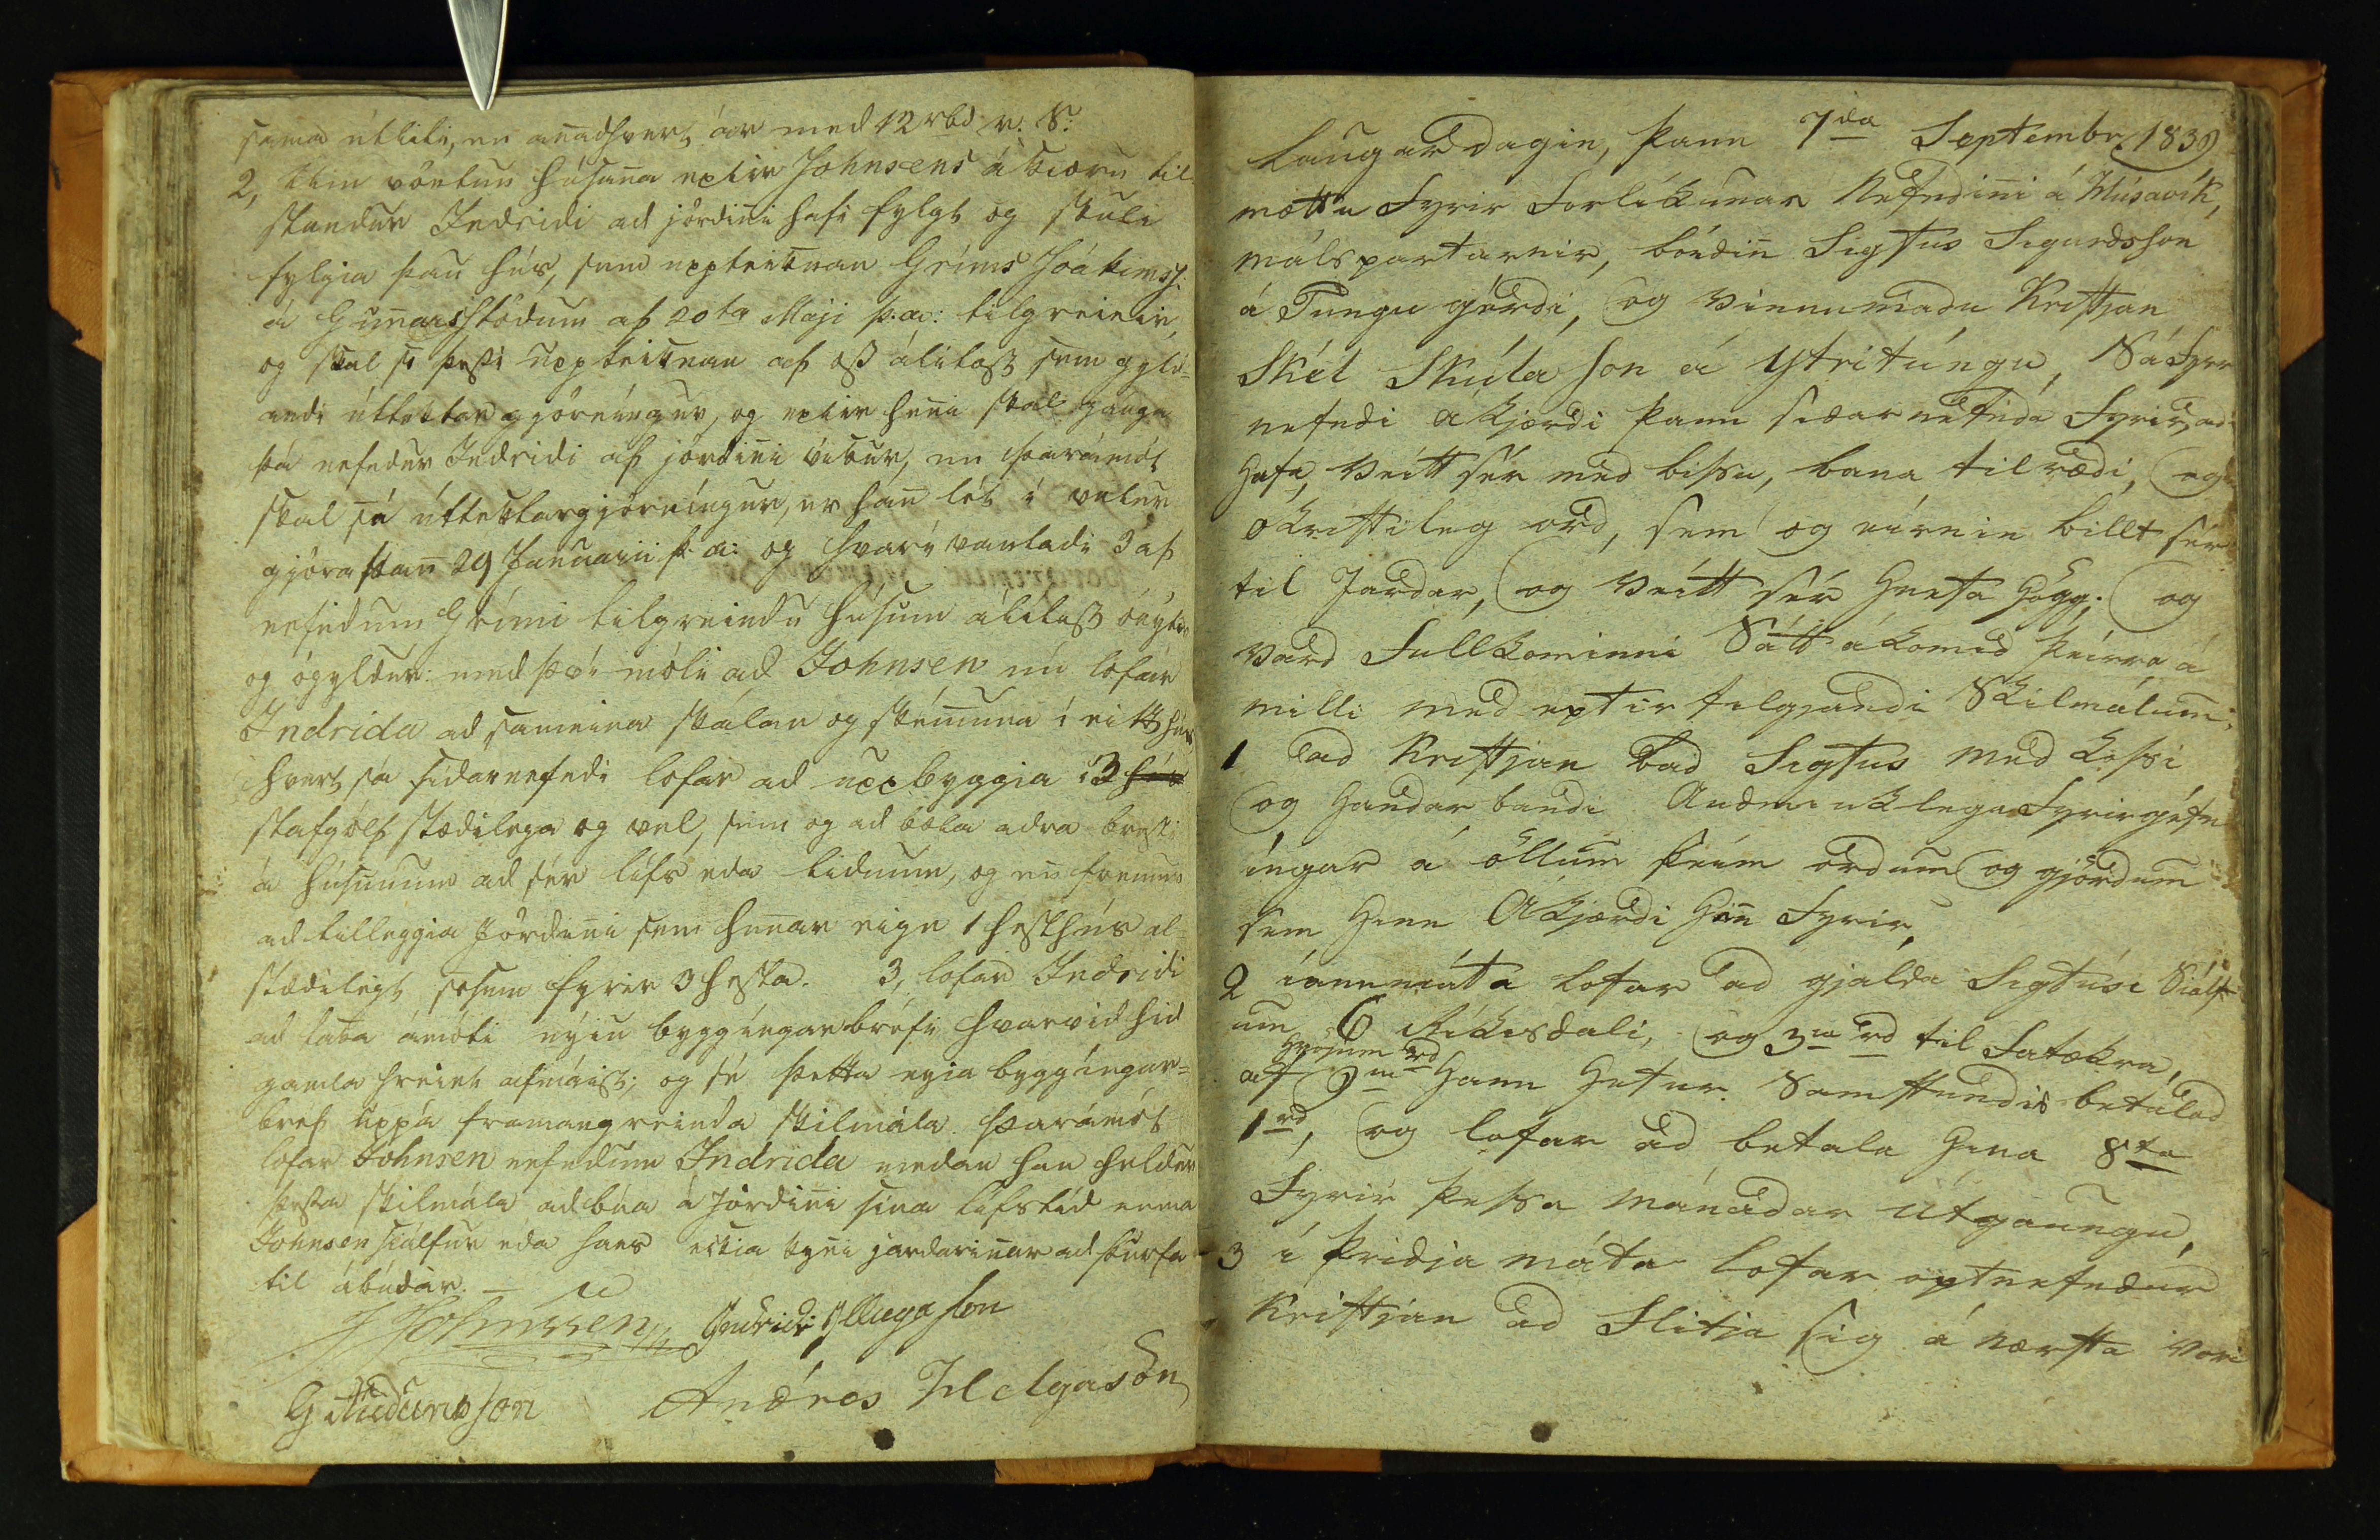 sama útliti, en anadhvert ár med 12 rbd r. S:
2, Um vöntun húsana eptir Johnsens ákæru til
stendur Indridi ad jördini hafi fylgt og skuli
fylgia þau hús, sem uppteiknan Gríms Jóakimss.
á Gunarsstödum af 20ta Maji þ.a: tilgreinir,
og skal so þessi uppteiknan af oss álítast sem gyld-
andi úttektargjörníngur, og eptir heni skal gánga
þá nefndur Indridi af jördini víkur, en þarámót
skal sá úttektargjörníngur, er han lét í vetur
gjöra þan 29 Januarii þ.a: og hvarí vantadi 3 af
nefndum Grími tilgreindu húsum álítast ónýtr
og ógyldur: med því móti ad Johnsen nú lofar
Indrida ad sameina skálan og skémuna í eitt hús
hvert sá sídarnefndi lofar ad uppbyggia í 3 hús
stafgólf stædilega og vel, sem og ad bæta adra bresti
á húsunum ad sér lífs eda lidnum, og en fremur
ad tilleggia Jördini sem henar eign 1 hesthús al-
stædilegt sosem fyrir 3 hesta. 3, lofar Indridi
ad taka ámóti nýiu byggíngarbréfi hvarvid hid
gamla hreint afmáist; og sé þetta nyia byggíngar=
bref uppá framangreinda skilmála. Þarámót
lofar Johnsen nefndum Indrida medan han heldur
þessa skilmála ad búa á Jördini sína lífstíd nema
Johnsen siálfur eda hans eckia kyni jardarinar ad þurfa
til ábúdar. —
J Johnssen Indridi Illugason
G Audunsson Andres Helgason
Laugardagin, þann 7da Septembr 1839
mættu Fyrir Forlíkunar Nefndini á Húsavík,
málspartarnir, bóndin Sigtus Sigurdsson
á Tungu gerdi, og Vinnumadu Kristjan
Skúla son á Ytritúngu, Sá Fyr
nefndi Akjærdi þann sídarnefnda Fyrir ad
Hafa, Veitt sér med bissu, bana tilrædi, og
okristileg ord, sem og eirnin billt sér
til Jardar, og Veitt sér Hnefa Högg; og
Vard Fullkominni Sátt ákomid þeirra á
milli med eptir Filgjandi Skilmálum:
1 ad Kristjan bad Sigtus med kossi
og Handar bandi Audmiuklega Fyrirgefn
íngar á öllum þeim ordum og gjördum
sem Hinn Akjærdi Han Fyrir,
2 ínnmáta Lofar ad gjalda Sigtúsi Siálf
um 6 Ríkisdali, og 3ia rd til Fatækra,
af hvorjum 9 rd Hann Hefur Samstundis betalad
1 rd, og lofar ad betala Hina 8ta
Fyrir þessa mánadar útgaungu,
3 í þridja máta Lofar optnefndur
Kristján ad Flitja sig á næsta Vori